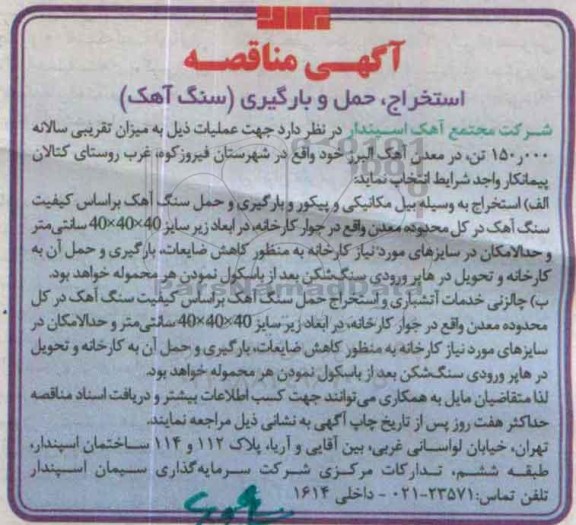 آگهی مناقصه
استخراج، حمل و بارگیری (سنگ آهک)
شرکت مجتمع آهک اسپندار در نظر دارد جهت عملیات ذیل به میزان تقریبی سالانه
۱۵۰٫۰۰۰ تن، در معدن آهک البرز خود واقع در شهرستان فیروزکوه، غرب روستای کتالان
پیمانکار واجد شرایط انتخاب نماید:
الف) استخراج به وسیله بیل مکانیکی و پیکور و بارگیری و حمل سنگ آهک براساس کیفیت
سنگ آهک در کل محدوده معدن واقع در جوار کارخانه، در ابعاد زیر سایز 40×40×40 سانتی‌متر
و حدالامکان در سایزهای مورد نیاز کارخانه به منظور کاهش ضایعات، بارگیری و حمل آن به
کارخانه و تحویل در هاپر ورودی سنگ‌شکن بعد از باسکول نمودن هر محموله خواهد بود.
ب) چالزنی خدمات آتشباری و استخراج حمل سنگ آهک براساس کیفیت سنگ آهک در کل
محدوده معدن واقع در جوار کارخانه، در ابعاد زیر سایز 40×40×40 سانتی‌متر و حدالامکان در
سایزهای مورد نیاز کارخانه به منظور کاهش ضایعات، بارگیری و حمل آن به کارخانه و تحویل
در هاپر ورودی سنگ‌شکن بعد از باسکول نمودن هر محموله خواهد بود.
لذا متقاضیان مایل به همکاری می‌توانند جهت کسب اطلاعات بیشتر و دریافت اسناد مناقصه
حداکثر هفت روز پس از تاریخ چاپ آگهی به نشانی ذیل مراجعه نمایند.
تهران، خیابان لواسانی غربی، بین آقایی و آریا، پلاک ۱۱۲ و ۱۱۴ ساختمان اسپندار،
طبقه ششم، تدارکات مرکزی شرکت سرمایه‌گذاری سیمان اسپندار
تلفن تماس: ۲۳۵۷۱-۰۲۱ - داخلی ۱۶۱۴
ParsNamadData